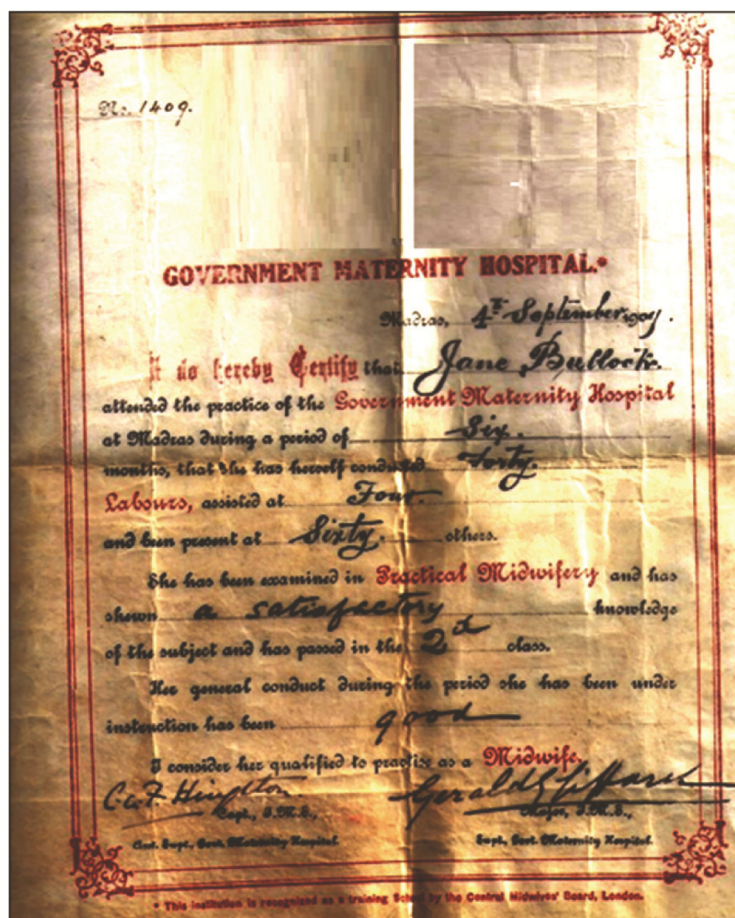 No. 1409.
GOVERNMENT MATERNITY HOSPITAL.*
Madras, 4th September, 1909.
I do hereby Certify that Jane Bullock.
attended the practice of the Government Maternity Hospital
at Madras during a period of Six.
months, that she has herself conducted Forty.
Labours, assisted at Four.
and been present at Sixty. others.
She has been examined in Practical Midwifery and has
shewn a satisfactory knowledge
of the subject and has passed in the 2d class.
Her general conduct during the period she has been under
instruction has been good
I consider her qualified to practise as a Midwife.
C.A.F. Hingston Gerald Giffard
Capt., I.M.S., Major, I.M.S.,
Asst. Supt., Govt. Maternity Hospital. Supt., Govt. Maternity Hospital.
* This institution is recognized as a training School by the Central Midwives' Board, London.